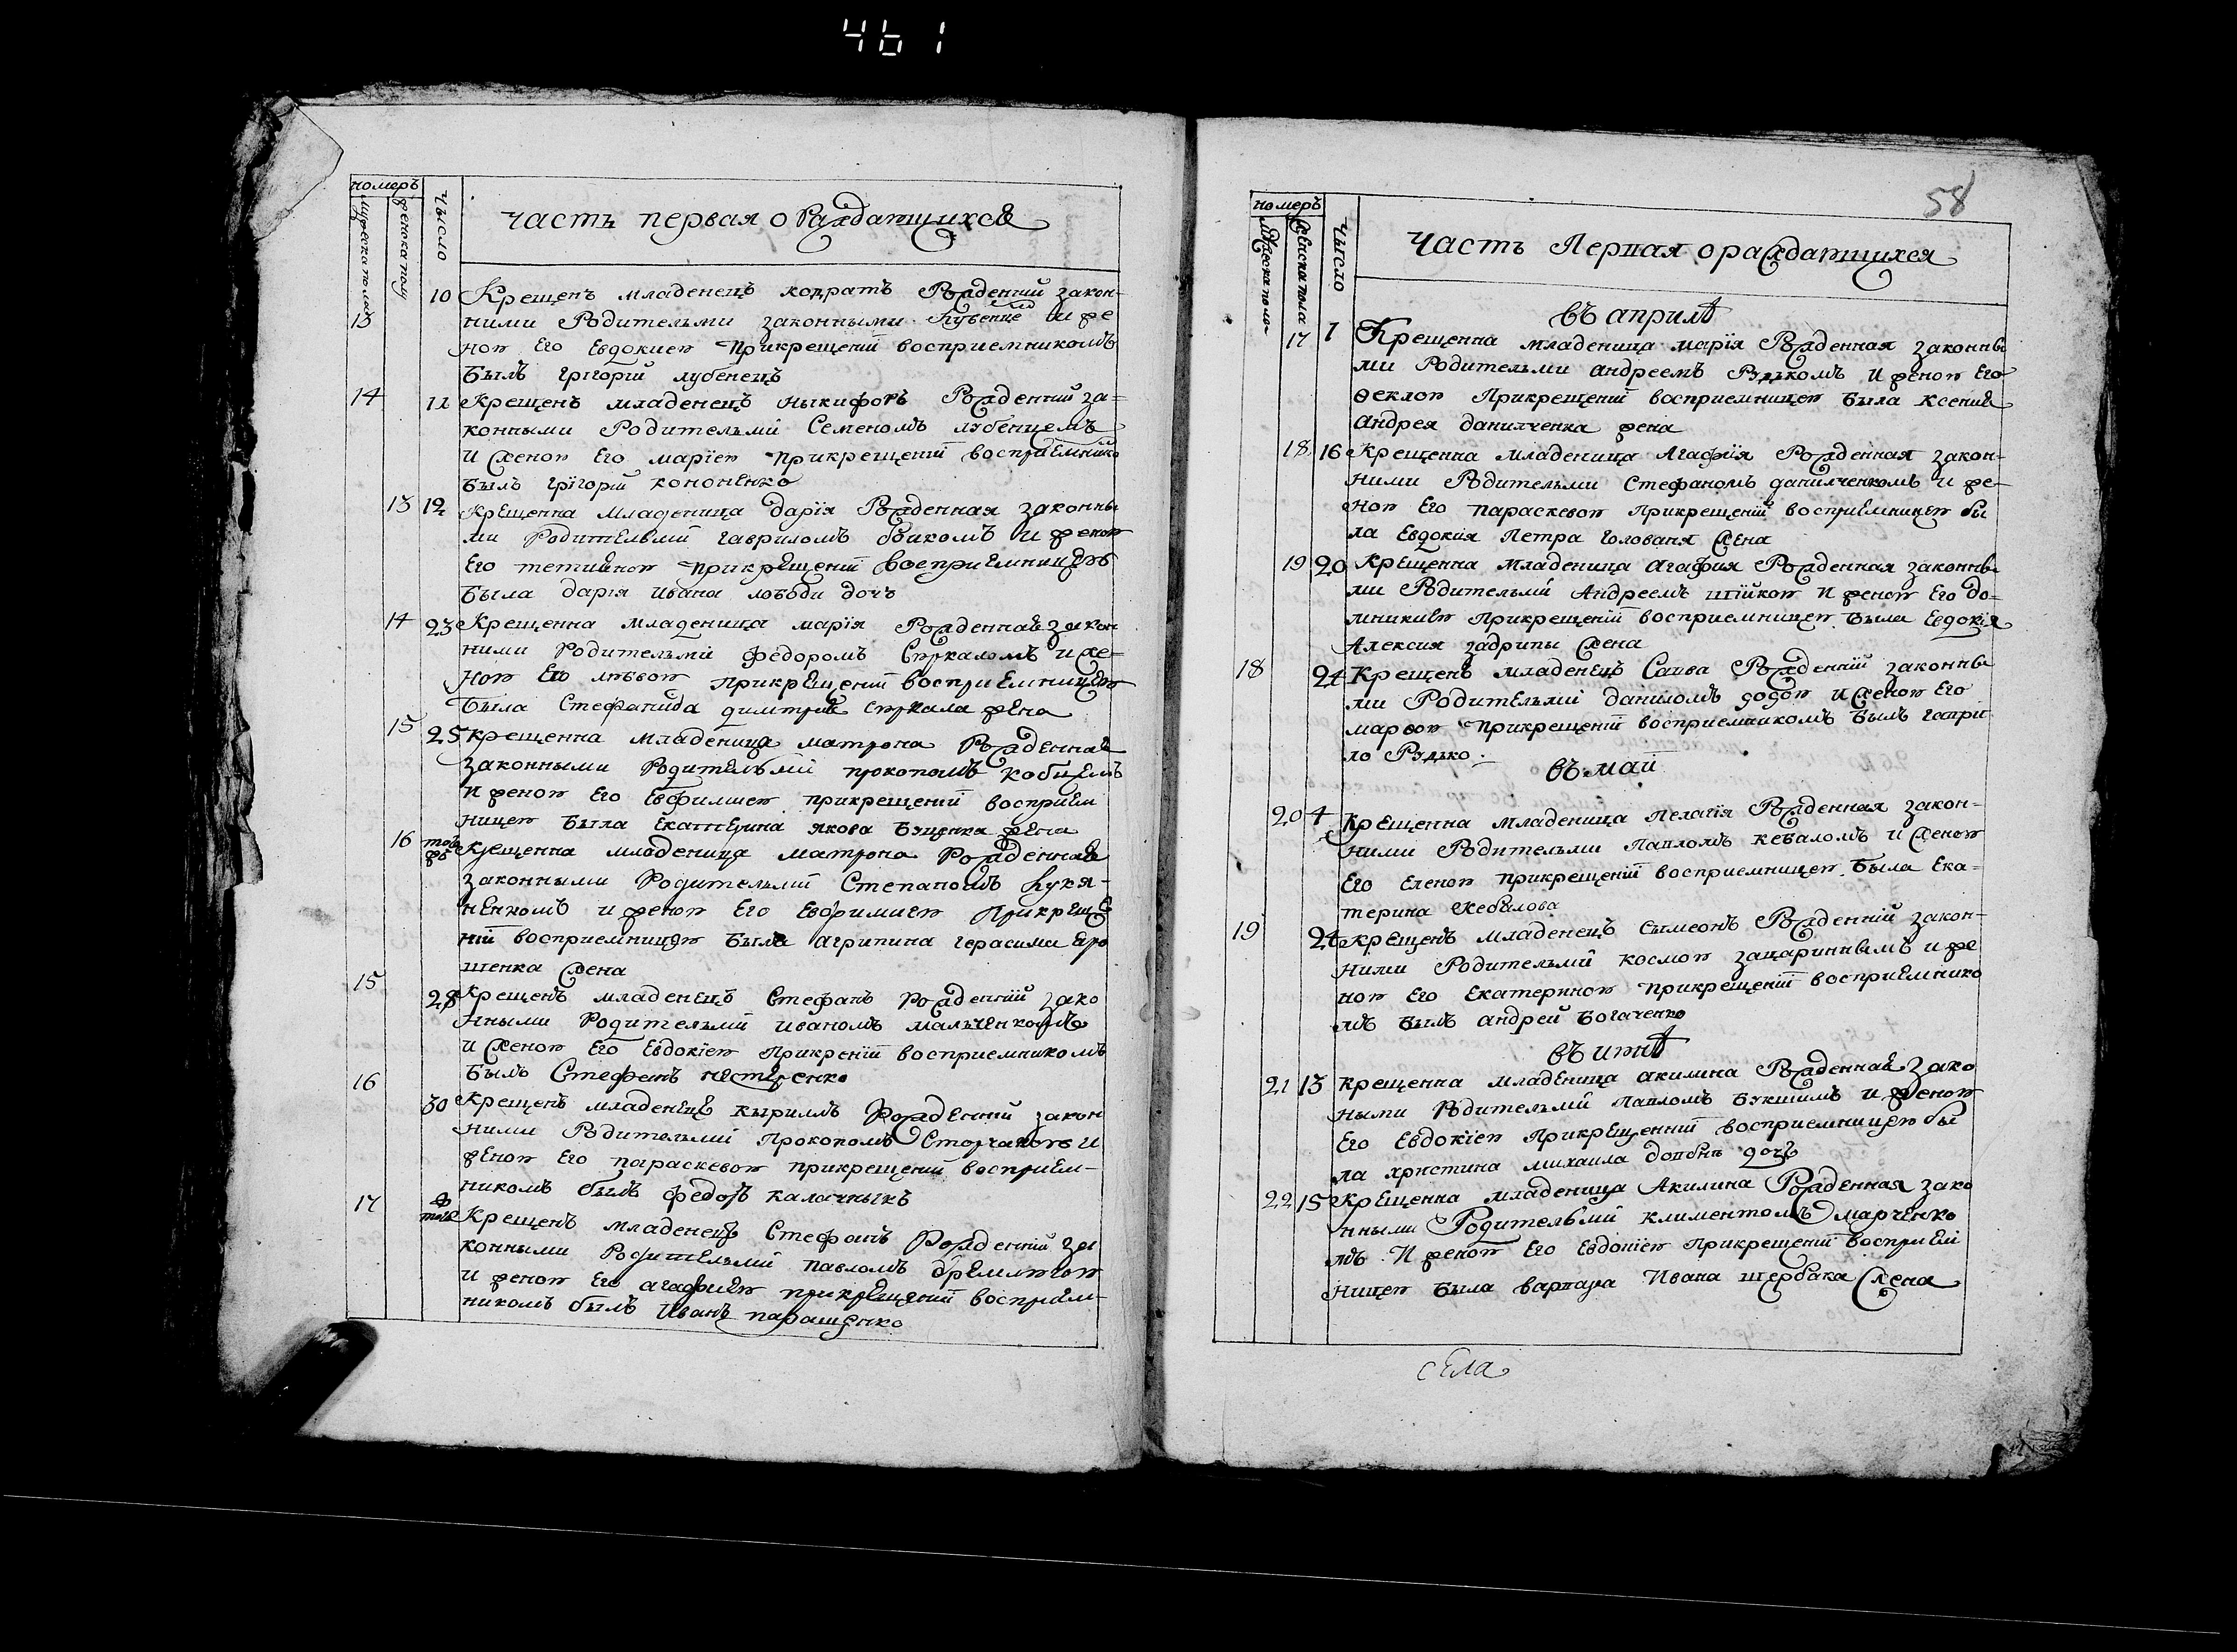 461
номеръ
мужеска полу
женска полу
число
часть первая о Раждающихся
13 10 Крещенъ младенецъ кодратъ Рожденнїй закон-
ними Родительми законными Лубенце и же
ною Его Евдокиею Прикрещенїи восприемникомъ
Былъ Григорїй лубенецъ
14 11 Крещенъ младенецъ Ныкифоръ Рожденнїй за-
конными Родительми Семеномъ лубенцемъ
И женою Его марїею прикрещенїи восприемнико
былъ Григорїй кононенко
13 12 Крещенна младеница дарїя Рожденная законны
ми Родительми гавриломъ Биком и женою
Его тетияною прикрещенїи восприемницею
Была дарїя ивана лободи дочъ
14 23 Крещенна младеница марїя Рожденная закон
ними Родительми федоромъ Стукаломъ и же-
ною Его любвою прикрещенїи восприемницею
Была Стефанида димитрия стукала жена
15 25 крещенна младеница матрона Рожденная
законными Родительми прокопомъ кобцемъ
И женою Его Евфимиею прикрещенїи восприем
ницею была Екатерина якова Буценка жена
16 тогожъ Крещенна младеница матрона Рожденная
законными Родительми Степаномъ Лукя-
ненкомъ и женою Его Евфимиею Прикреще
нїи восприемницею Была агрипина герасима яро
шенка жена
15 28 Крещенъ младенецъ Стефанъ Рожденнїй зако
нными Родительми иваномъ мальченкомъ
И женою Его Евдокїею Прикренїи восприемникомъ
былъ Стефанъ нестеренко
16 30 Крещенъ младенецъ кырилъ Рожденнїй закон
ними Родительми Прокопомъ Сторчакомъ И
женою Его параскевою прикрещенїи восприем-
никомъ былъ федоръ калачныкъ
17 тогожъ Крещенъ младенецъ Стефанъ Рожденнїй за
конными Родительми павломъ Еремлюгою
и женою Его агафиею прикрещенїи восприем-
никомъ былъ Иванъ паращенко
58
номеръ
мужеска пола
женска пола
число
Часть Первая о раждающихся
въ априлѣ
17 1 Крещенна младеница марїя Рожденная законны
ми Родительми андреемъ Рудькомъ И женою Его
Ѳеклою Прикрещенїи восприемницею Была Ксения
Андрея данилченка жена
18 16 Крещенна младеница Агафїя Рожденная закон-
ними Родительми Стефаномъ данилченкомъ и же-
ною Его Параскевою Прикрещенїи восприемницею бы
ла Евдокия Петра Голованя жена
19 20 Крещенна младеница Агафия Рожденная законны
ми Родительми Андреемъ шїйкою И женою Его до-
мникиею Прикрещенїи восприемницею Была Евдокїя
Алексия задрипы жена
18 24 Крещенъ младенецъ Савва Рожденнїй законны
ми Родительми даниломъ додою и женою Его
марѳою Прикрещенїи восприемникомъ Былъ гаври
ло Рудько
въ маїи
20 4 Крещенна младеница Пелагїя Рожденная закон-
ними Родительми Павломъ кебаломъ и женою
Его Еленою прикрещенїи восприемницею Была Ека-
терина Кебалова
19 24 крещенъ младенецъ сымеонъ Рожденнїй закон-
ними Родительми космою зацариннымъ и же
ною Его Екатериною прикрещенїи восприемнико
мъ Былъ андрей Богаченко
въ июнѣ
21 13 крещенна младеница акилина Рожденная зако
ными Родительми Павломъ Букшимъ и женою
Его Евдокїею Прикрещеннїи восприемницею бы
ла христина михаила довбнь дочъ
22 15 Крещенна младеница Акилина Рожденная зако
нными Родительми климентомъ марченко
мъ И женою Его Евдокїею Прикрещенїи восприем
ницею Была варвара Ивана щербака жена
села